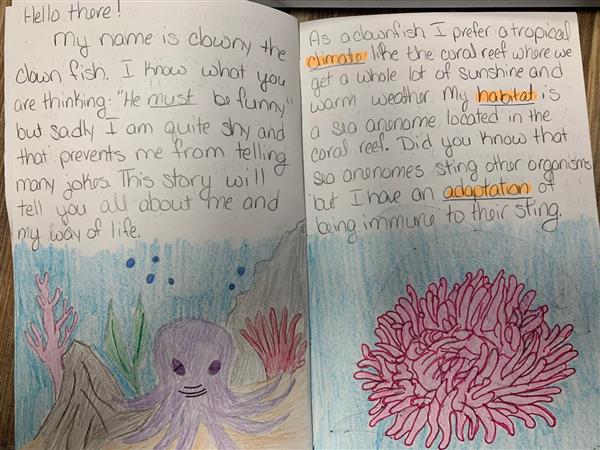 Hello there!
My name is clowny the
clown fish. I know what you
are thinking: "He must be funny"
but sadly I am quite shy and
that prevents me from telling
many jokes. This story will
tell you all about me and
my way of life.
As a clownfish I prefer a tropical
climate like the coral reef where we
get a whole lot of sunshine and
warm weather. My habitat is
a sea anenome located in the
coral reef. Did you know that
sea anenomes sting other organisms
but I have an adaptation of
being immune to their sting.